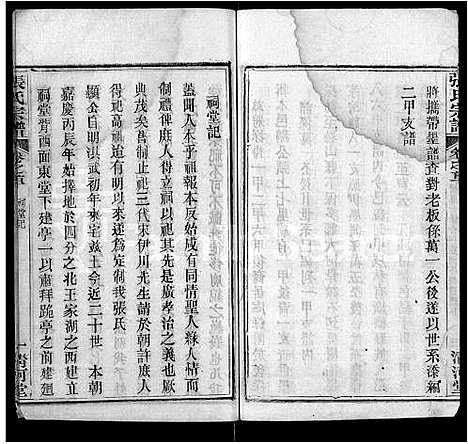 將攜帶墨譜查對老板係萬一公後遂以世系添編
二甲支譜
張氏宗譜
卷之五
清河堂
祠堂記
蓋聞人本乎祖報本反始咸有同情聖人緣情
制禮俾庶人得立祠以祀其先是廣孝治之義也厥
典茂矣古者庶人止祀三代宋伊川先生請於朝許庶人
祀高祖迨有明以來遂爲定制我張氏
顯公自明洪武初年來宅茲土今近二十世 本朝
嘉慶丙辰年始擇地於四分之北王家湖之西坊建
祠堂背西面東堂下建亭一以肅拜跪亭之前建廻
張氏宗譜
卷之五
祠堂記
一
清河堂